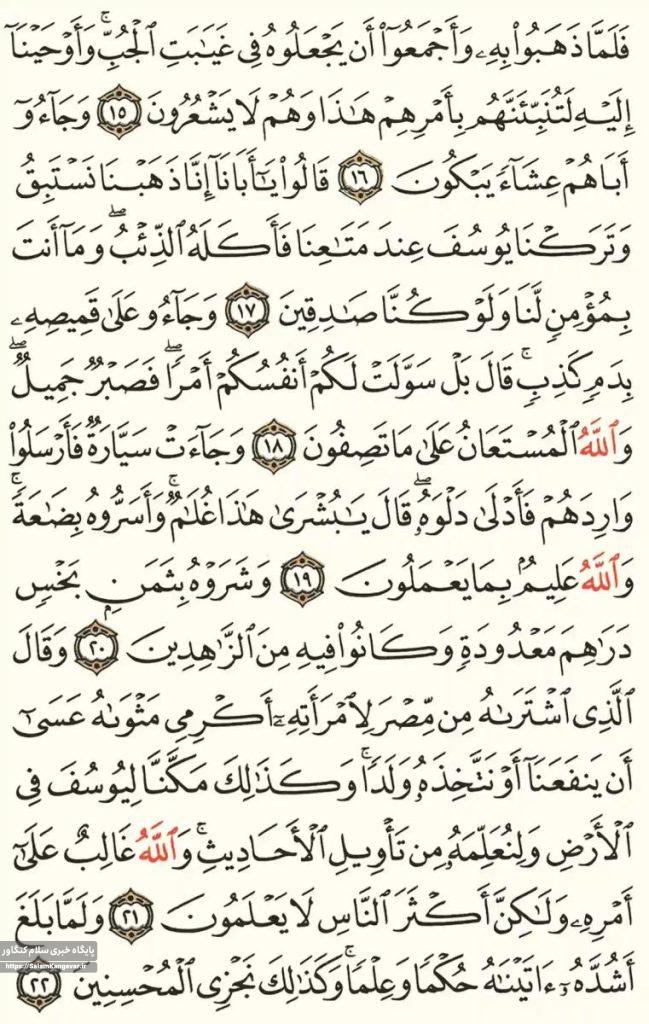 فَلَمَّا ذَهَبُوا۟ بِهِۦ وَأَجْمَعُوٓا۟ أَن يَجْعَلُوهُ فِى غَيَـٰبَتِ ٱلْجُبِّ ۚ وَأَوْحَيْنَآ
إِلَيْهِ لَتُنَبِّئَنَّهُم بِأَمْرِهِمْ هَـٰذَا وَهُمْ لَا يَشْعُرُونَ ١٥ وَجَآءُوٓ
أَبَاهُمْ عِشَآءً يَبْكُونَ ١٦ قَالُوا۟ يَـٰٓأَبَانَآ إِنَّا ذَهَبْنَا نَسْتَبِقُ
وَتَرَكْنَا يُوسُفَ عِندَ مَتَـٰعِنَا فَأَكَلَهُ ٱلذِّئْبُ ۖ وَمَآ أَنتَ
بِمُؤْمِنٍ لَّنَا وَلَوْ كُنَّا صَـٰدِقِينَ ١٧ وَجَآءُو عَلَىٰ قَمِيصِهِۦ
بِدَمٍ كَذِبٍ ۚ قَالَ بَلْ سَوَّلَتْ لَكُمْ أَنفُسُكُمْ أَمْرًا ۖ فَصَبْرٌ جَمِيلٌ ۖ
وَٱللَّهُ ٱلْمُسْتَعَانُ عَلَىٰ مَا تَصِفُونَ ١٨ وَجَآءَتْ سَيَّارَةٌ فَأَرْسَلُوا۟
وَارِدَهُمْ فَأَدْلَىٰ دَلْوَهُۥ ۖ قَالَ يَـٰبُشْرَىٰ هَـٰذَا غُلَـٰمٌ ۚ وَأَسَرُّوهُ بِضَـٰعَةً ۚ
وَٱللَّهُ عَلِيمٌۢ بِمَا يَعْمَلُونَ ١٩ وَشَرَوْهُ بِثَمَنٍۭ بَخْسٍ
دَرَٰهِمَ مَعْدُودَةٍ وَكَانُوا۟ فِيهِ مِنَ ٱلزَّٰهِدِينَ ٢٠ وَقَالَ
ٱلَّذِى ٱشْتَرَىٰهُ مِن مِّصْرَ لِٱمْرَأَتِهِۦٓ أَكْرِمِى مَثْوَىٰهُ عَسَىٰٓ
أَن يَنفَعَنَآ أَوْ نَتَّخِذَهُۥ وَلَدًا ۚ وَكَذَٰلِكَ مَكَّنَّا لِيُوسُفَ فِى
ٱلْأَرْضِ وَلِنُعَلِّمَهُۥ مِن تَأْوِيلِ ٱلْأَحَادِيثِ ۚ وَٱللَّهُ غَالِبٌ عَلَىٰٓ
أَمْرِهِۦ وَلَـٰكِنَّ أَكْثَرَ ٱلنَّاسِ لَا يَعْلَمُونَ ٢١ وَلَمَّا بَلَغَ
أَشُدَّهُۥٓ ءَاتَيْنَـٰهُ حُكْمًا وَعِلْمًا ۚ وَكَذَٰلِكَ نَجْزِى ٱلْمُحْسِنِينَ ٢٢
پایگاه خبری سلام کنگاور
https://SalamKangavar.ir